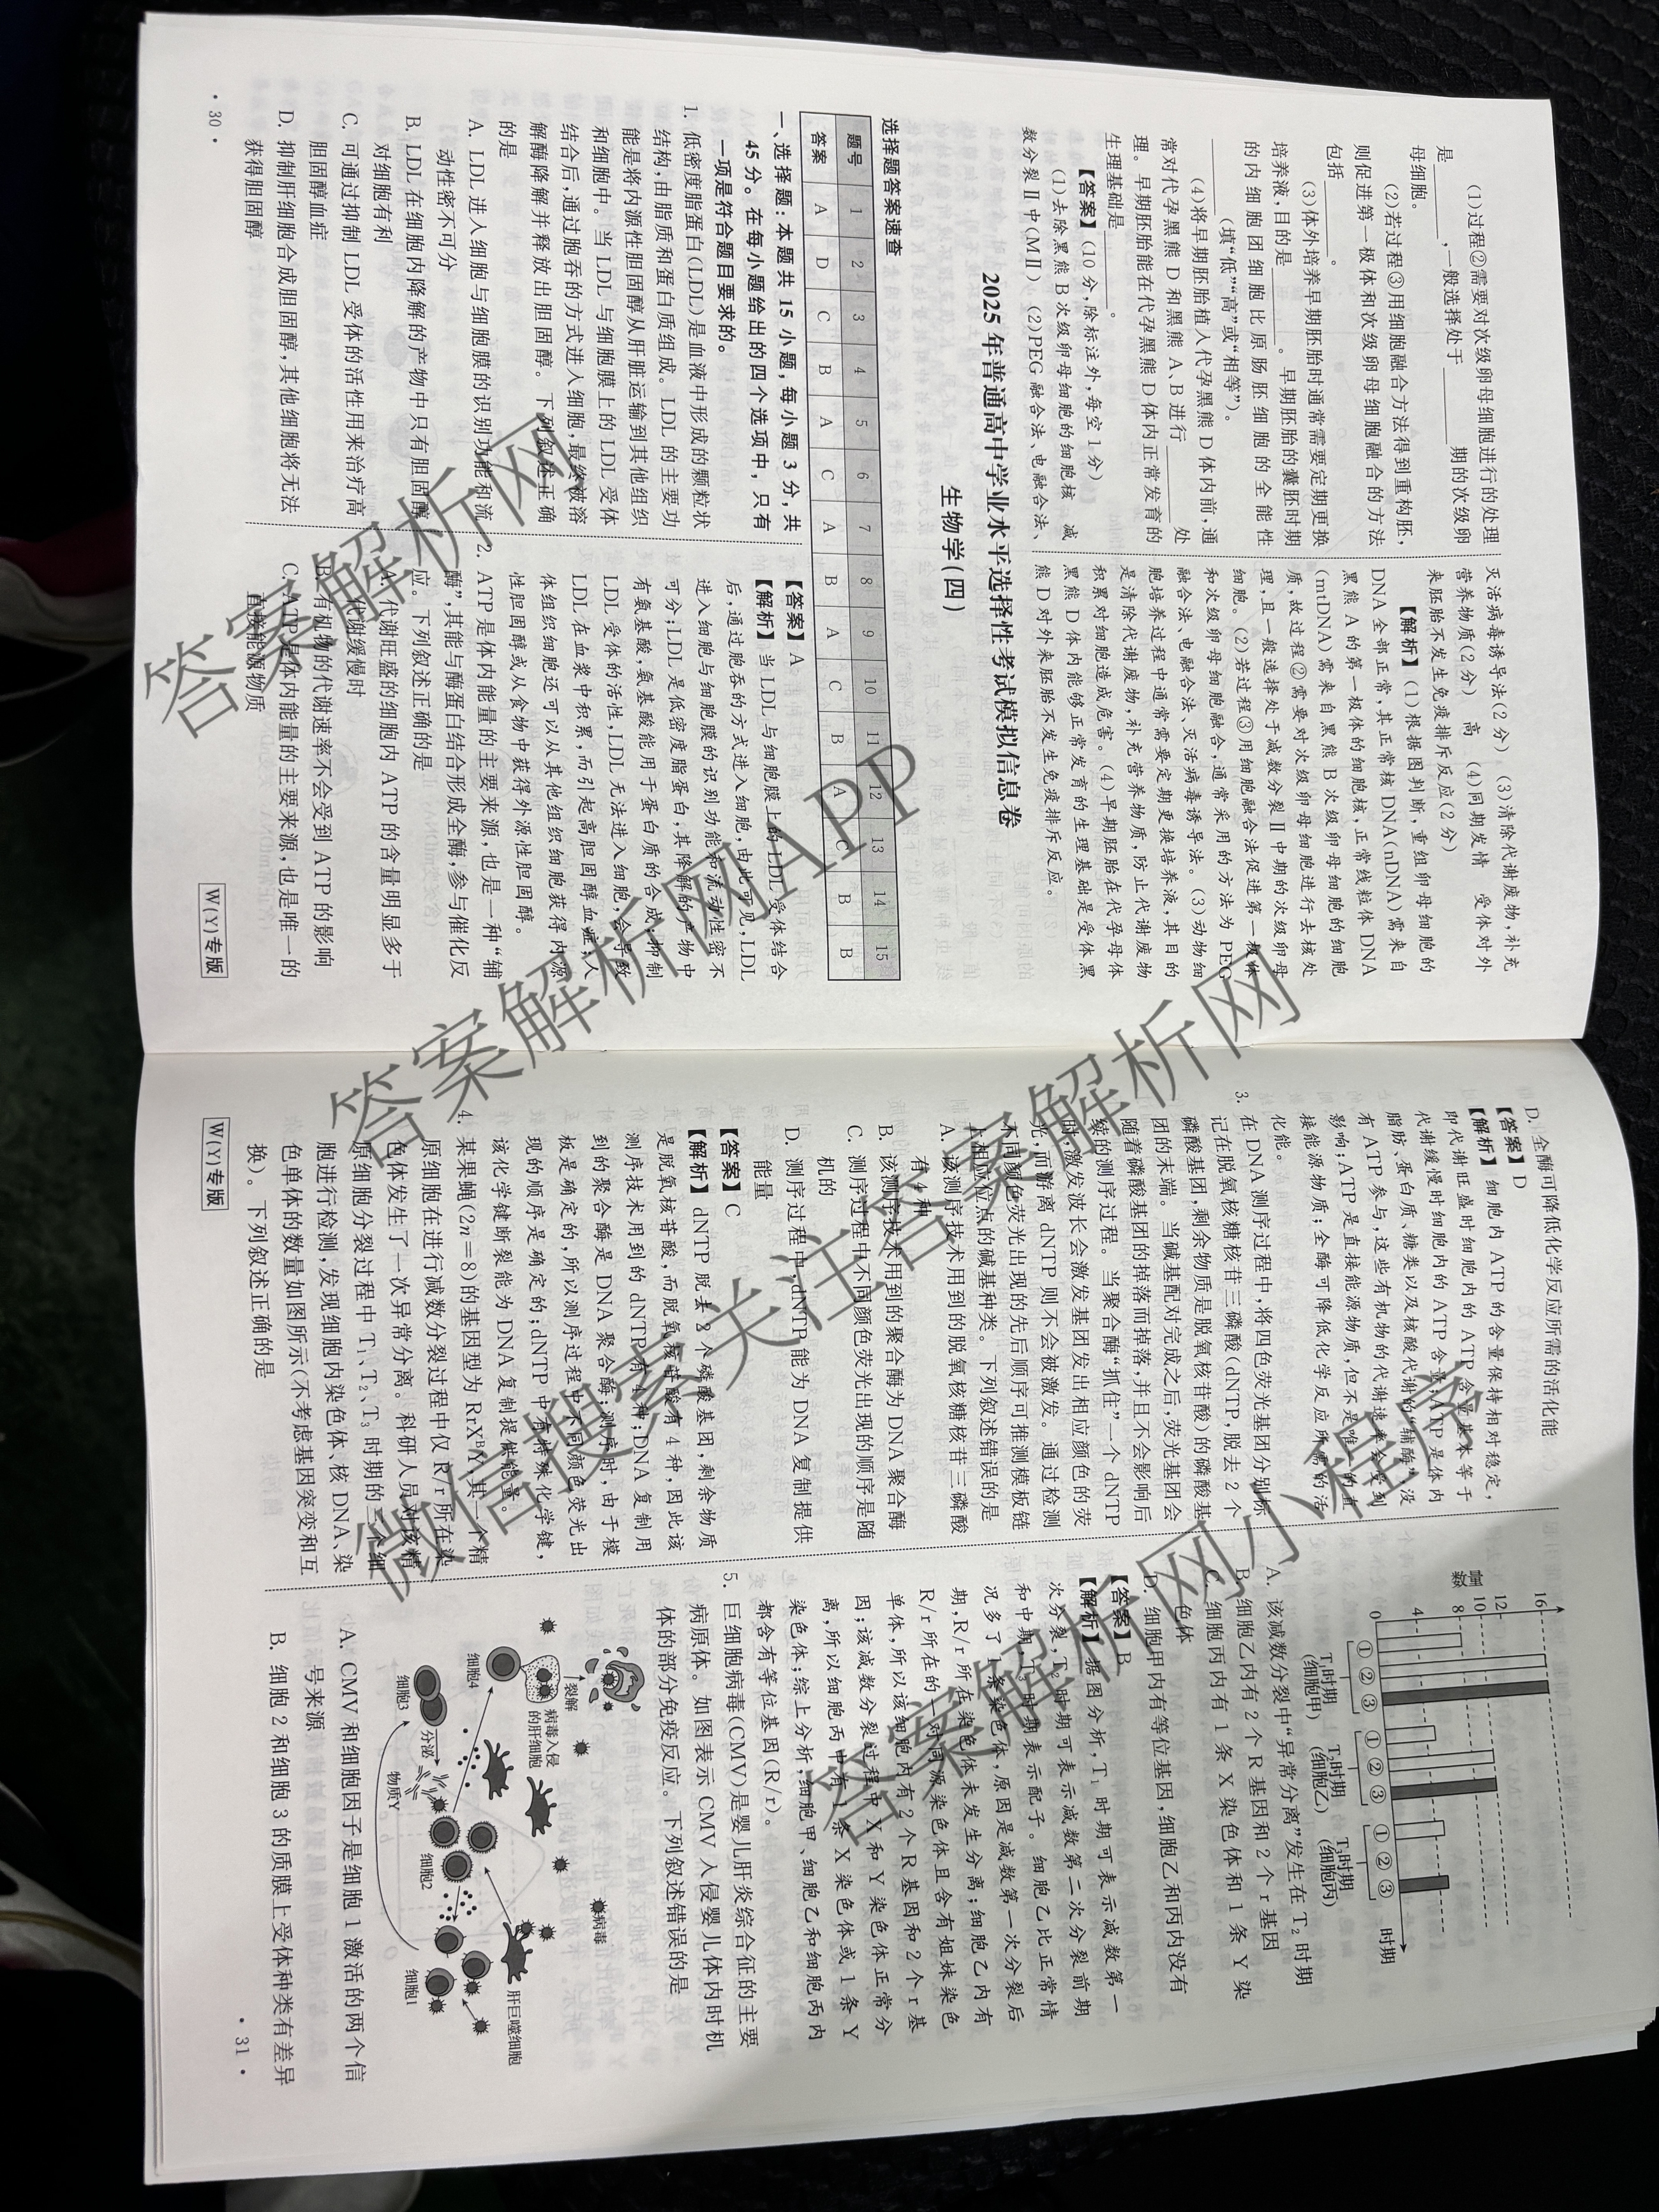 (1)过程②需要对次级卵母细胞进行的处理
是________，一般选择处于________期的次级卵
母细胞。
(2)若过程③用细胞融合方法得到重构胚，
则促进第一极体和次级卵母细胞融合的方法
包括________。
(3)体外培养早期胚胎时通常需要定期更换
培养液，目的是________。早期胚胎的囊胚时期
的内细胞团细胞比原肠胚细胞的全能性
________(填“低”“高”或“相等”)。
(4)将早期胚胎植入代孕黑熊 D 体内前，通
常对代孕黑熊 D 和黑熊 A、B 进行________处
理。早期胚胎能在代孕黑熊 D 体内正常发育的
生理基础是________。
【答案】(10 分，除标注外，每空 1 分)
(1)去除黑熊 B 次级卵母细胞的细胞核　减
数分裂Ⅱ中(MⅡ)　(2)PEG 融合法、电融合法、
灭活病毒诱导法(2 分)　(3)清除代谢废物，补充
营养物质(2 分)　高　(4)同期发情　受体对外
来胚胎不发生免疫排斥反应(2 分)
【解析】(1)根据图判断，重组卵母细胞的
DNA 全部正常，其正常核 DNA(nDNA)需来自
黑熊 A 的第一极体的细胞核，正常线粒体 DNA
(mtDNA)需来自黑熊 B 次级卵母细胞的细胞
质，故过程②需要对次级卵母细胞进行去核处
理，且一般选择处于减数分裂Ⅱ中期的次级卵母
细胞。(2)若过程③用细胞融合法促进第一极体
和次级卵母细胞融合，通常采用的方法为 PEG
融合法、电融合法、灭活病毒诱导法。(3)动物细
胞培养过程中通常需要定期更换培养液，其目的
是清除代谢废物，补充营养物质，防止代谢废物
积累对细胞造成危害。(4)早期胚胎在代孕母体
黑熊 D 体内能够正常发育的生理基础是受体黑
熊 D 对外来胚胎不发生免疫排斥反应。
2025 年普通高中学业水平选择性考试模拟信息卷
生物学(四)
选择题答案速查
题号 1 2 3 4 5 6 7 8 9 10 11 12 13 14 15
答案 A D C B A C A B A C B A C B B
一、选择题：本题共 15 小题，每小题 3 分，共
45 分。在每小题给出的四个选项中，只有
一项是符合题目要求的。
1. 低密度脂蛋白(LDL)是血液中形成的颗粒状
结构，由脂质和蛋白质组成。LDL 的主要功
能是将内源性胆固醇从肝脏运输到其他组织
和细胞中。当 LDL 与细胞膜上的 LDL 受体
结合后，通过胞吞的方式进入细胞，最终被溶
解酶降解并释放出胆固醇。下列叙述正确
的是
A. LDL 进入细胞与细胞膜的识别功能和流
动性密不可分
B. LDL 在细胞内降解的产物中只有胆固醇
对细胞有利
C. 可通过抑制 LDL 受体的活性用来治疗高
胆固醇血症
D. 抑制肝细胞合成胆固醇，其他细胞将无法
获得胆固醇
【答案】A
【解析】当 LDL 与细胞膜上的 LDL 受体结合
后，通过胞吞的方式进入细胞，由此可见，LDL
进入细胞与细胞膜的识别功能和流动性密不
可分；LDL 是低密度脂蛋白，其降解的产物中
有氨基酸，氨基酸能用于蛋白质的合成；抑制
LDL 受体的活性，LDL 无法进入细胞，会导致
LDL 在血浆中积累，而引起高胆固醇血症；人
体组织细胞还可以从其他组织细胞获得内源
性胆固醇或从食物中获得外源性胆固醇。
2. ATP 是体内能量的主要来源，也是一种“辅
酶”，其能与酶蛋白结合形成全酶，参与催化反
应。下列叙述正确的是
A. 代谢旺盛的细胞内 ATP 的含量明显多于
代谢缓慢时
B. 有机物的代谢速率不会受到 ATP 的影响
C. ATP 是体内能量的主要来源，也是唯一的
直接能源物质
· 30 ·
W(Y)专版
D. 全酶可降低化学反应所需的活化能
【答案】D
【解析】细胞内 ATP 的含量保持相对稳定，
即代谢旺盛时细胞内的 ATP 含量基本等于
代谢缓慢时细胞内的 ATP 含量；ATP 是体内
脂肪、蛋白质、糖类以及核酸代谢的“辅酶”，没
有 ATP 参与，这些有机物的代谢速率会受到
影响；ATP 是直接能源物质，但不是唯一的直
接能源物质；全酶可降低化学反应所需的活
化能。
3. 在 DNA 测序过程中，将四色荧光基团分别标
记在脱氧核糖核苷三磷酸(dNTP，脱去 2 个
磷酸基团，剩余物质是脱氧核苷酸)的磷酸基
团的末端。当碱基配对完成之后，荧光基团会
随着磷酸基团的掉落而掉落，并且不会影响后
续的测序过程。当聚合酶“抓住”一个 dNTP
时，激发波长会激发基团发出相应颜色的荧
光，而游离 dNTP 则不会被激发。通过检测
不同颜色荧光出现的先后顺序可推测模板链
上相应位点的碱基种类。下列叙述错误的是
A. 该测序技术用到的脱氧核糖核苷三磷酸
有 4 种
B. 该测序技术用到的聚合酶为 DNA 聚合酶
C. 测序过程中不同颜色荧光出现的顺序是随
机的
D. 测序过程中，dNTP 能为 DNA 复制提供
能量
【答案】C
【解析】dNTP 脱去 2 个磷酸基团，剩余物质
是脱氧核苷酸，而脱氧核苷酸有 4 种，因此该
测序技术用到的 dNTP 有 4 种；DNA 复制用
到的聚合酶是 DNA 聚合酶；测序时，由于模
板是确定的，所以测序过程中不同颜色荧光出
现的顺序是确定的；dNTP 中有特殊化学键，
该化学键断裂能为 DNA 复制提供能量。
4. 某果蝇(2n＝8)的基因型为 RrXᴮY，其一个精
原细胞在进行减数分裂过程中仅 R/r 所在染
色体发生了一次异常分离。科研人员对该精
原细胞分裂过程中 T₁、T₂、T₃ 时期的三个细
胞进行检测，发现细胞内染色体、核 DNA、染
色单体的数量如图所示(不考虑基因突变和互
换)。下列叙述正确的是
数量
16
12
10
8
4
0
① ② ③ ① ② ③ ① ② ③ 时期
T₁时期 T₂时期 T₃时期
(细胞甲) (细胞乙) (细胞丙)
A. 该减数分裂中“异常分离”发生在 T₂ 时期
B. 细胞乙内有 2 个 R 基因和 2 个 r 基因
C. 细胞丙内有 1 条 X 染色体和 1 条 Y 染
色体
D. 细胞甲内有等位基因，细胞乙和丙内没有
【答案】B
【解析】据图分析，T₁ 时期可表示减数第一
次分裂，T₂ 时期可表示减数第二次分裂前期
和中期，T₃ 时期表示配子。细胞乙比正常情
况多了一条染色体，原因是减数第一次分裂后
期，R/r 所在染色体未发生分离；细胞乙内有
R/r 所在的一对同源染色体且含有姐妹染色
单体，所以该细胞内有 2 个 R 基因和 2 个 r 基
因；该减数分裂过程中 X 和 Y 染色体正常分
离，所以细胞丙中有 1 条 X 染色体或 1 条 Y
染色体；综上分析，细胞甲、细胞乙和细胞丙内
都含有等位基因(R/r)。
5. 巨细胞病毒(CMV)是婴儿肝炎综合征的主要
病原体。如图表示 CMV 入侵婴儿体内时机
体的部分免疫反应。下列叙述错误的是
病毒
裂解
病毒入侵
的肝细胞
肝巨噬细胞
细胞4
分泌
细胞3
物质Y
细胞2
细胞1
A. CMV 和细胞因子是细胞 1 激活的两个信
号来源
B. 细胞 2 和细胞 3 的质膜上受体种类有差异
W(Y)专版
· 31 ·
答案解析网
答案解析网APP
微信搜索关注答案解析网
答案解析网小程序